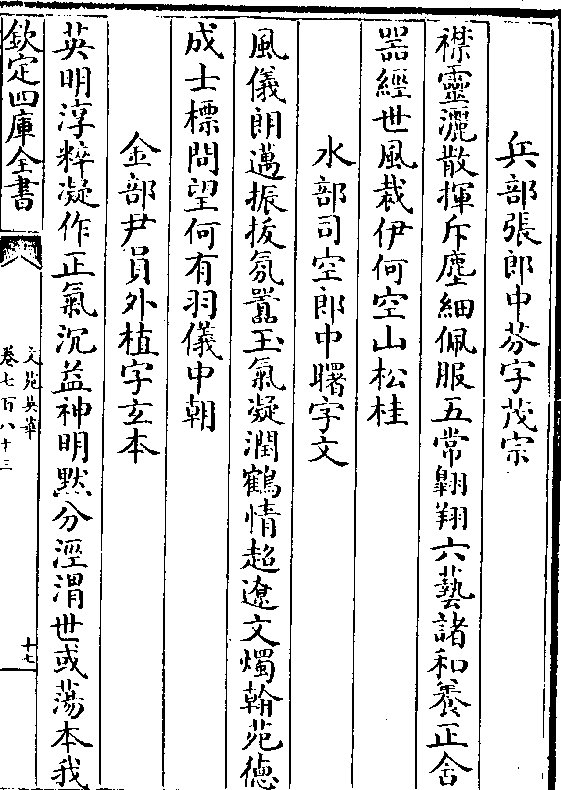 兵部張郎中芬字茂宗
襟靈灑散揮斥塵細佩服五常翺翔六藝諸和養正舍
器經世風裁伊何空山松桂
水部司空郎中曙字文
風儀朗邁振拔氛囂玉氣凝潤鶴情超遼文燭翰苑徳
成士標問望何有羽儀中朝
金部尹員外植字玄本
英明淳粹凝作正氣沉益神明黙分涇渭世或蕩本我
欽定四庫全書
文苑英華
卷七百八十三
十七